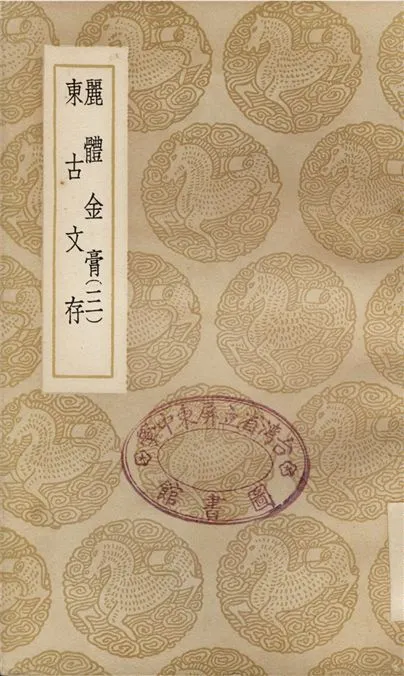 麗體金膏(三)
東古文存
台湾省立屏東中學
圖書館